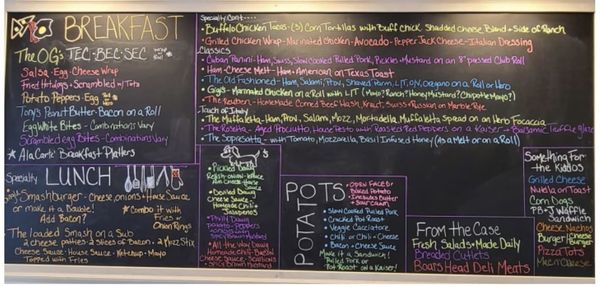 BREAKFAST
The OG's TEC · BEC · SEC
Salsa · Egg · Cheese Wrap
Fried Hotdogs · Scrambled w/ Tots
Potato · Peppers · Egg
Tony's Peanut Butter · Bacon on a Roll
Egg White Bites - Combinations Vary
Scrambled egg Bites - Combinations Vary
Ala Carte Breakfast Platters
Specialty LUNCH
Smashburger - Cheese, Onions + House Sauce
or make it a Double!
Add Bacon!
Combo it with Fries or Onion Rings
The loaded Smash on a Sub
2 cheese patties · 2 slices of Bacon · 2 Mozz Stix
Cheese Sauce · House Sauce · Ketchup · Mayo
Topped with Fries
Specialty Cont
Buffalo Chicken Tacos - (3) Corn Tortillas with Buff Chick, Shredded Cheese Blend + Side of Ranch
Grilled Chicken Wrap - Marinated Chicken - Avocado - Pepper Jack Cheese - Italian Dressing
Classics
Cuban Panini - Ham, Swiss, Slow Cooked Pulled Pork, Pickles + Mustard on an 8" pressed Club Roll
Ham + Cheese Melt - Ham + American on Texas Toast
The Old Fashioned - Ham, Salami, Prov, Shaved Parm, L, T, O/V, Oregano on a Roll or Hero
Gigi's - Marinated Chicken on a Roll with L/T (Mayo? Ranch? Honey Mustard? Chipotle Mayo?)
The Reuben - Homemade Corned Beef Hash, Kraut, Swiss + Russian on Marble Rye
Touch of Italy
The Muffaletta - Ham, Prov, Salam, Mozz, Mortadella, Muffaletta Spread on an Hero Focaccia
The Rosetta - Aged Prociutto, House Pesto with Roasted Red Peppers on a Kaiser - Balsamic Truffle glaze
The Sopresotta - with Tomato, Mozzarella, Basil Infused Honey (As a Melt or on a Roll)
Pickled Dog
Relish - onion -
Cheese - House
Sauce
Deviled Dog
Cheese Sauce -
Homemade Chili -
Jalapenos
Philly Dawg
potato - Peppers
All the Way Dawg
Homemade Chili - Bacon
Cheese Sauce - Scallions
Spicy Brown Mustard
POTATO POTS
Open Faced
Baked Potato
Includes Butter
+ Sour Cream
Slow Cooked Pulled Pork
Crocked Pot Roast
Veggie Cacciatore
Chili or Chili + Cheese
Bacon + Cheese Sauce
Make it a Sandwich!
Pulled Pork or
Pot Roast on a Kaiser!
From the Case
Fresh Salads · Made Daily
Breaded Cutlets
Boars Head Deli Meats
Something For
the Kiddos
Grilled Cheese
Nutella on Toast
Corn Dogs
PB + J Waffle
Sandwich
Cheese Nachos
Burger/Cheese
Burger!
Pizza Tots
Mac n Cheese